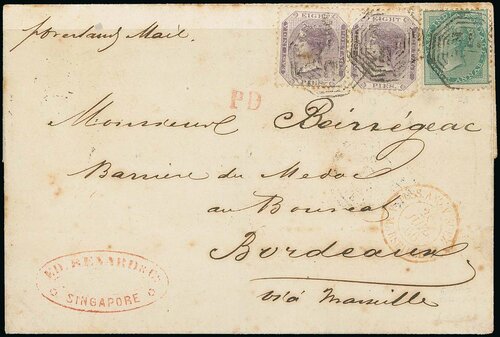 per overland Mail.
EAST INDIA
EIGHT
PIES.
EIGHT
PIES.
PD
Monsieur Beirrégeac
Barrière du Medoc
au Bouscat
Bordeaux
viâ Marseille
SINGAPORE